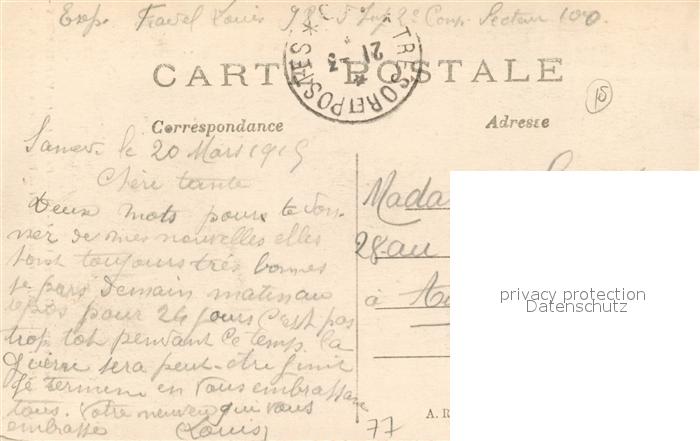 Exp. Travel Louis 98e Inf 2e Comp Secteur 100.
CARTE POSTALE
TRESOR ET POSTES
21 -3
15
Correspondance
Adresse
Samedi le 20 Mars 1915
Chère tante
Deux mots pour te don-
ner de mes nouvelles elles
sont toujours très bonnes
je pars Demain matin au
repos pour 24 jours C'est pas
trop tot pendant ce temp la
Guerre sera peut-etre finit
Je termine en vous embrassant
tous. Votre neveu qui vous
embrasse Louis
Mada
28 au
à
privacy protection
Datenschutz
A. R
77